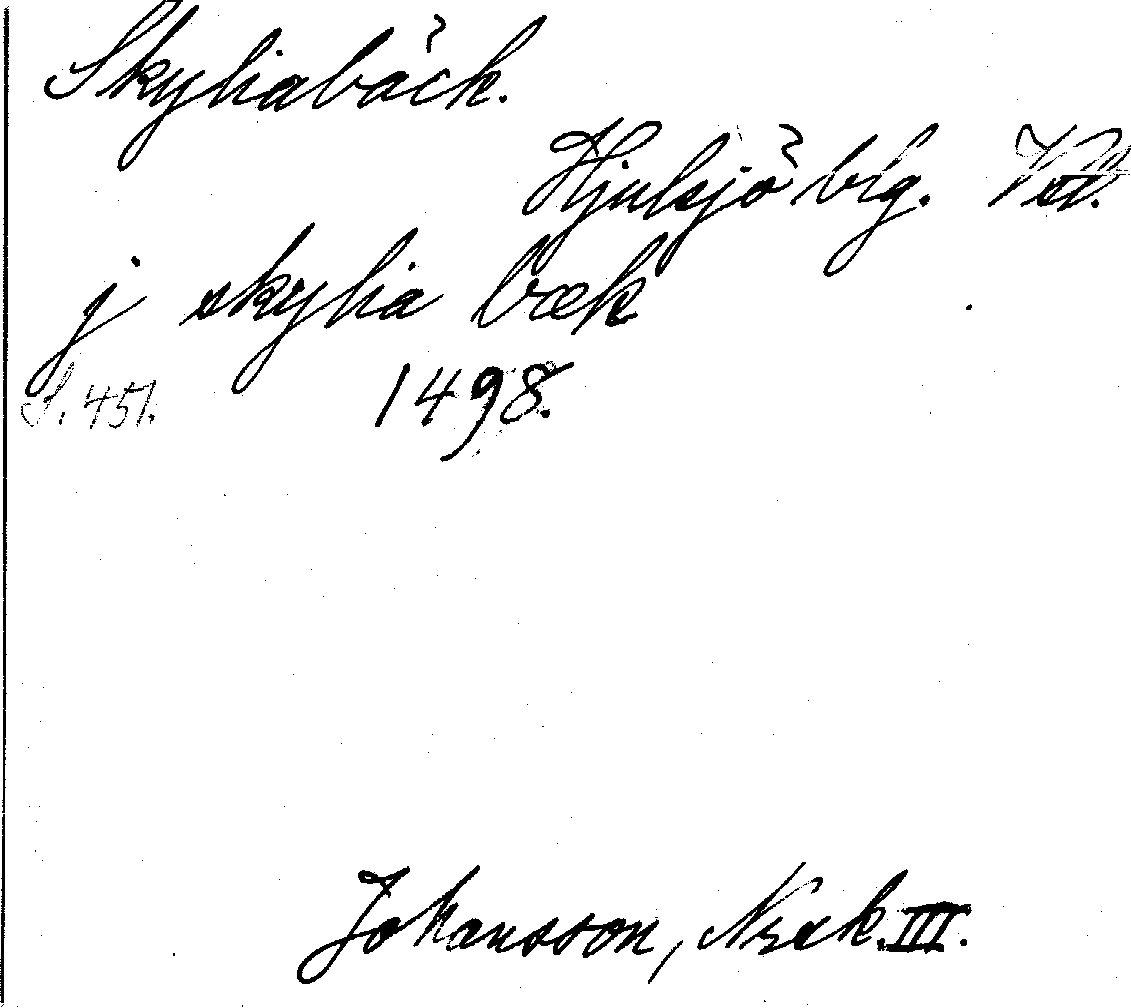 Skyliabäck.
Hjulsjö blg. Vstl.
j skylia bæk
S. 451. 1498.
Johansson, Norask. III.